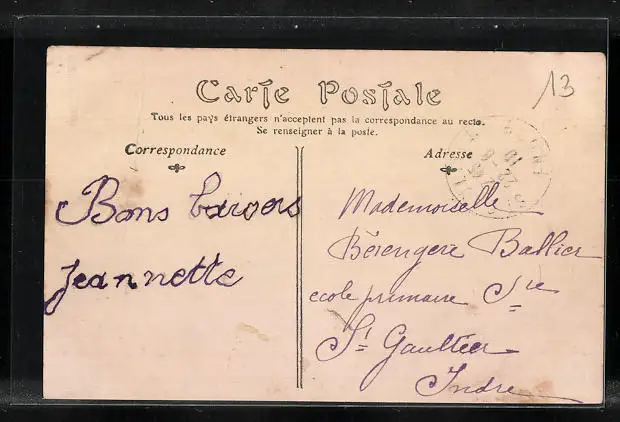 13
Carte Postale
Tous les pays étrangers n'acceptent pas la correspondance au recto.
Se renseigner à la poste.
Correspondance
Adresse
Bons baisers
Jeannette
Mademoiselle
Bérengère Ballier
ecole primaire Sre
St Gaultier
Indre